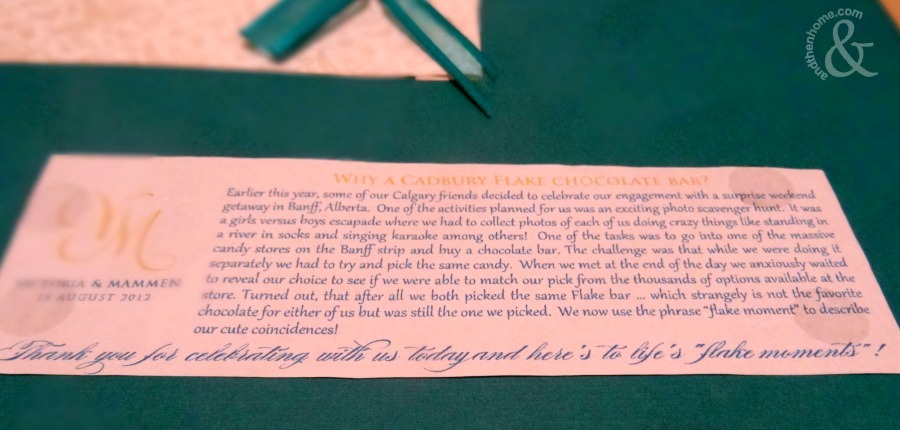 andthenhome.com
&
WHY A CADBURY FLAKE CHOCOLATE BAR?
Earlier this year, some of our Calgary friends decided to celebrate our engagement with a surprise weekend
getaway in Banff, Alberta. One of the activities planned for us was an exciting photo scavenger hunt. It was
a girls versus boys escapade where we had to collect photos of each of us doing crazy things like standing in
a river in socks and singing karaoke among others! One of the tasks was to go into one of the massive
candy stores on the Banff strip and buy a chocolate bar. The challenge was that while we were doing it
separately we had to try and pick the same candy. When we met at the end of the day we anxiously waited
to reveal our choice to see if we were able to match our pick from the thousands of options available at the
store. Turned out, that after all we both picked the same Flake bar ... which strangely is not the favorite
chocolate for either of us but was still the one we picked. We now use the phrase "flake moment" to describe
our cute coincidences!
VM
VICTORIA & MAMMEN
18 AUGUST 2012
Thank you for celebrating with us today and here's to life's "flake moments"!